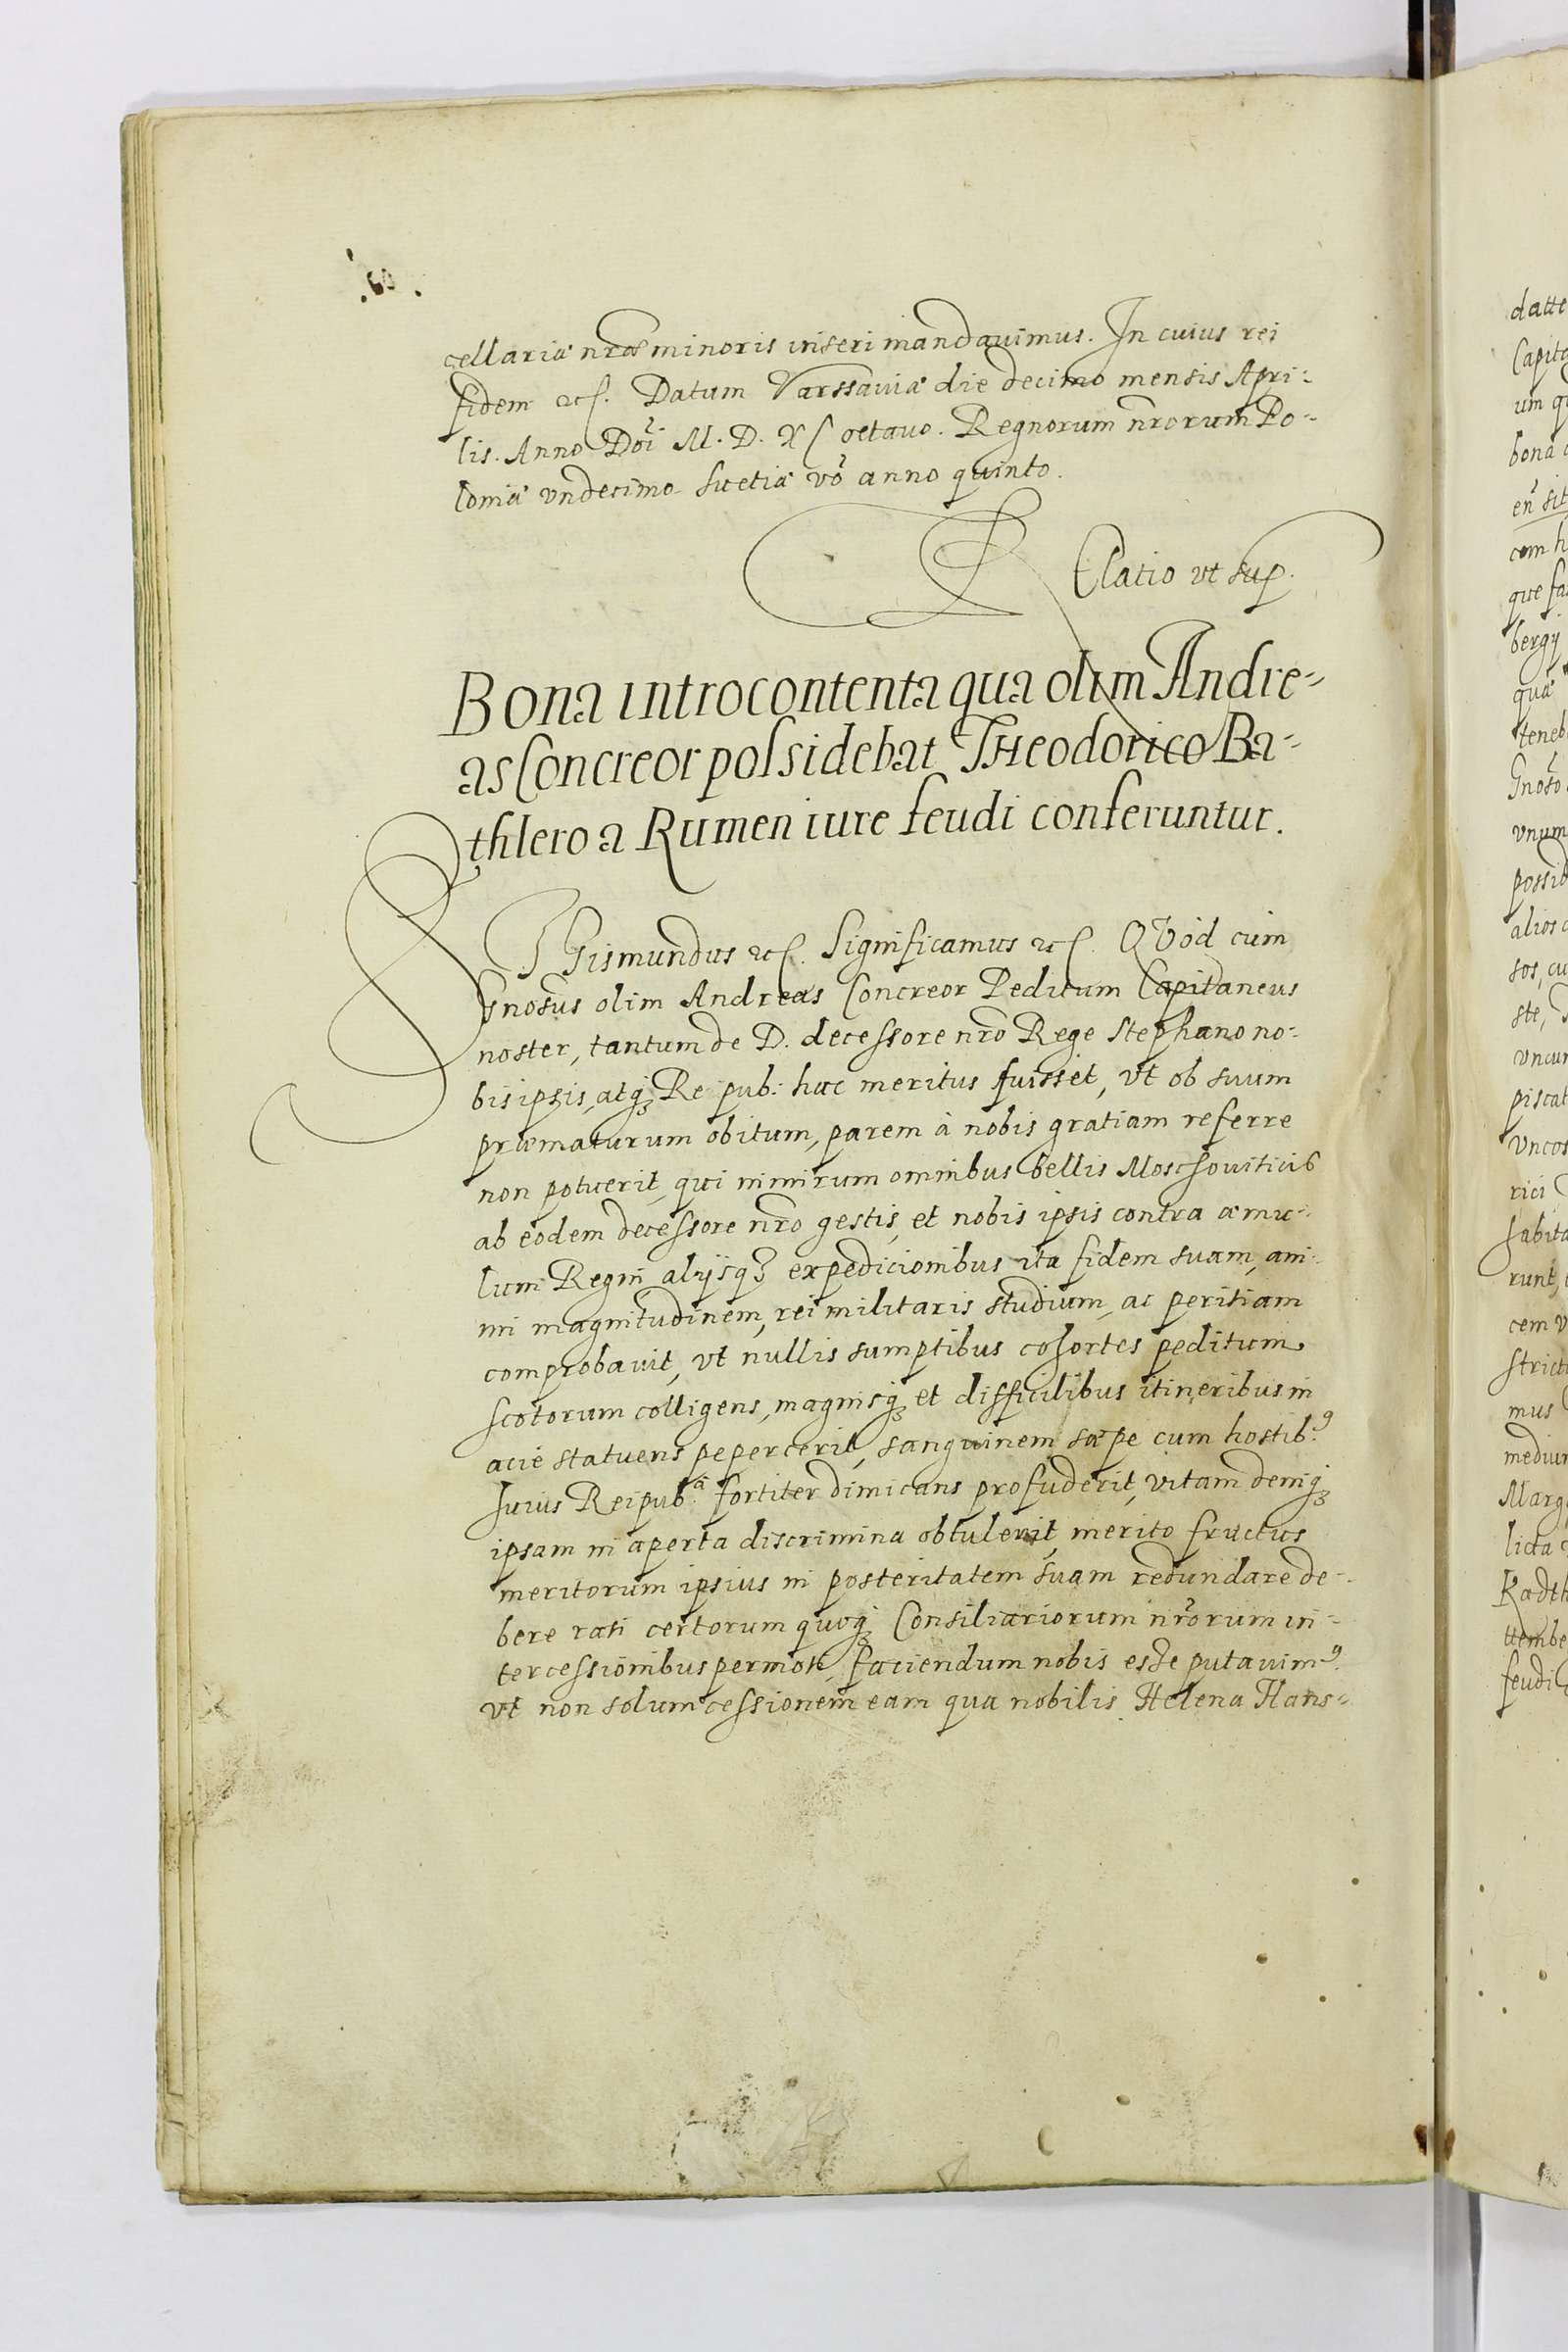 cellariæ nrae minoris inseri mandavimus. In cuius rei
fidem etc. Datum Varssaviæ die decimo mensis Apri-
lis. Anno Doi M. D. XC octavo. Regnorum nrorum Po-
loniæ undecimo Suetiæ vo anno quinto.
RElatio ut sup.
Bona introcontenta quæ olim Andre-
as Concreor possidebat THeodorico Ba-
thlero a Rumen iure feudi conferuntur.
SIGismundus etc. Significamus etc. QVod cum
Gnosus olim Andreas Concreor Peditum Capitaneus
noster, tantum de D. decessore nro Rege Stephano no-
bis ipsis, atq3 Re pub: hac meritus fuisset, ut ob suum
præmaturum obitum, parem à nobis gratiam referre
non potuerit, qui nimirum omnibus bellis Moschoviticis
ab eodem decessore nro gestis, et nobis ipsis contra æmu-
lum Regni alijsq3 expedicionibus ita fidem suam, ani-
mi magnitudinem, rei militaris studium, ac peritiam
comprobavit, ut nullis sumptibus cohortes peditum
scotorum colligens, magnisq3 et difficilibus itineribus in
acie statuens pepercerit, sanguinem sæpe cum hostib9
huius Reipub: fortiter dimicans profuderit, vitam deniq3
ipsam in aperta discrimina obtulerit, merito fructus
meritorum ipsius in posteritatem suam redundare de-
bere rati certorum quoq3 Consiliariorum nrorum in-
tercessionibus permoti, faciendum nobis esse putavim9.
ut non solum cessionem eam qua nobilis Helena Hans-